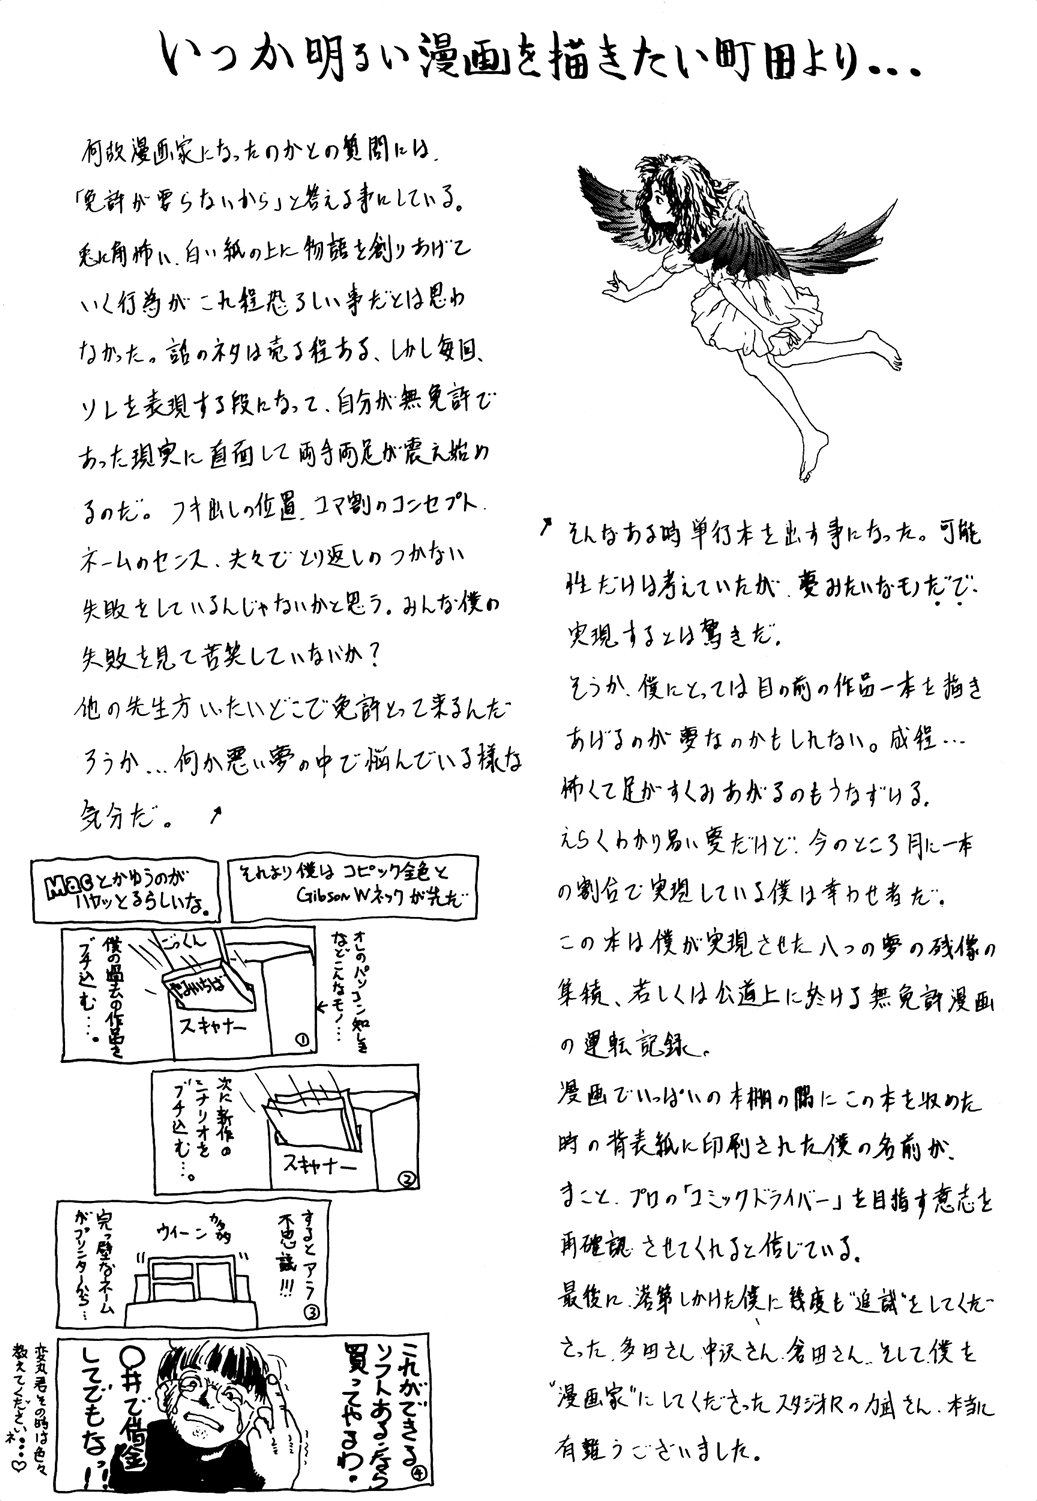 いつか明るい漫画を描きたい町田より...
何故漫画家になったのかとの質問には、
「免許が要らないから」と答える事にしている。
兎に角怖い、白い紙の上に物語を創りあげて
いく行為がこれ程恐ろしい事だとは思わ
なかった。話のネタは売る程ある、しかし毎回、
ソレを表現する段になって、自分が無免許で
あった現実に直面して両手両足が震え始め
るのだ。フキ出しの位置、コマ割のコンセプト、
ネームのセンス、夫々でとり返しのつかない
失敗をしているんじゃないかと思う。みんな僕の
失敗を見て苦笑していないか?
他の先生方いったいどこで免許とって来るんだ
ろうか...何か悪い夢の中で悩んでいる様な
気分だ。
そんなある時単行本を出す事になった。可能
性だけは考えていたが、夢みたいなモノだで、
実現するとは驚きだ。
そうか、僕にとっては目の前の作品一本を描き
あげるのが夢なのかもしれない。成程...
怖くて足がすくみあがるのもうなずける。
えらくわかり易い夢だけど、今のところ月に一本
の割合で実現している僕は幸わせ者だ。
この本は僕が実現させた八つの夢の残像の
集積、若しくは公道上に於ける無免許漫画
の運転記録。
漫画でいっぱいの本棚の隅にこの本を収めた
時の背表紙に印刷された僕の名前が、
まこと、プロの「コミックドライバー」を目指す意志を
再確認させてくれると信じている。
最後に、落第しかけた僕に幾度も“追試”をしてくだ
さった、多田さん、中沢さん、倉田さん、そして僕を
“漫画家”にしてくださったスタジオRの力武さん、本当に
有難うございました。
Macとかゆうのが
ハヤッとるらしいな。
それより僕はコピック全色と
Gibson Wネックが先だ
オレのパソコン知しき
などこんなモノ...
ごっくん
やみいちば
スキャナー
僕の過去の作品を
ブチ込む...。
①
次に新作の
シナリオを
ブチ込む...。
スキャナー
②
するとアラ
不思議!!!
ウイーン
完っ璧なネーム
がプリンターから...
③
これができる
ソフトあるなら
買ってやるわ。
〇井で借金
してでもなっ!!
④
その時は色々
教えてくださいネ...♡